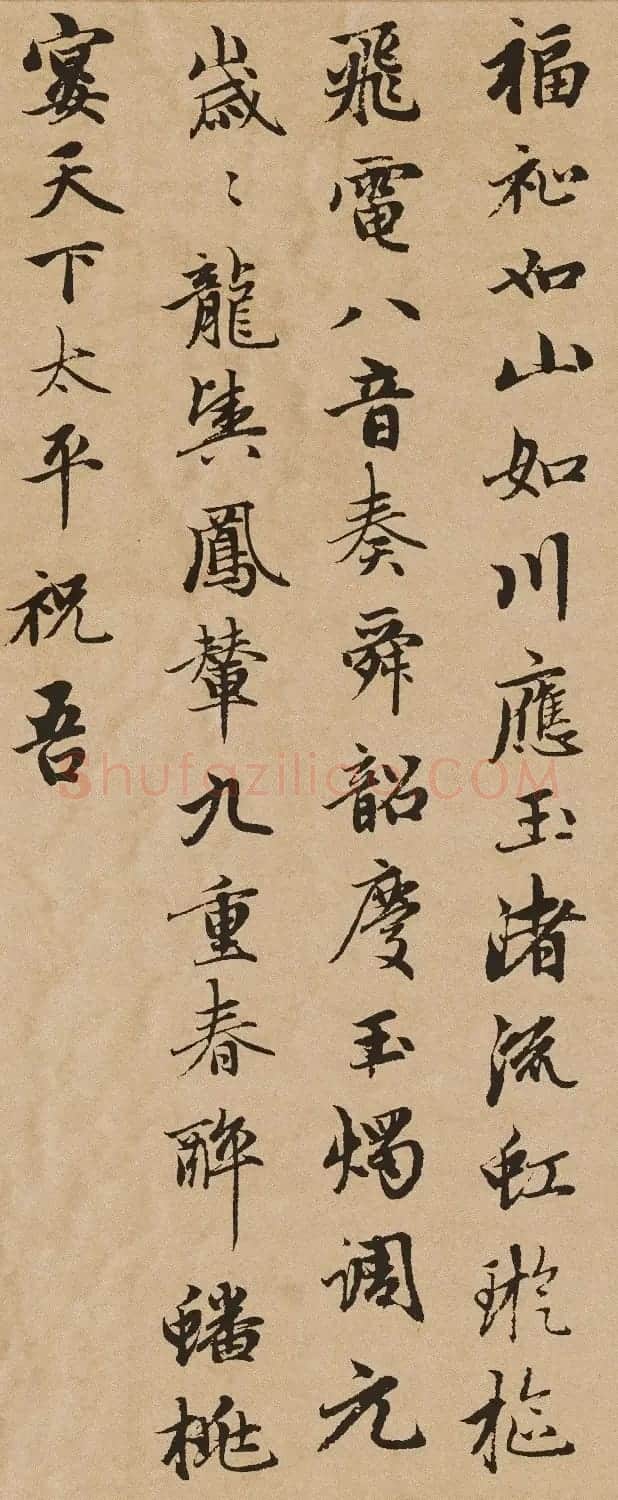 福祉如山如川應玉渚流虹璇樞
飛電八音奏舜韶慶玉燭調元
歲〻龍輿鳳輦九重春醉蟠桃
宴天下太平祝吾
Shufaziliao.COM